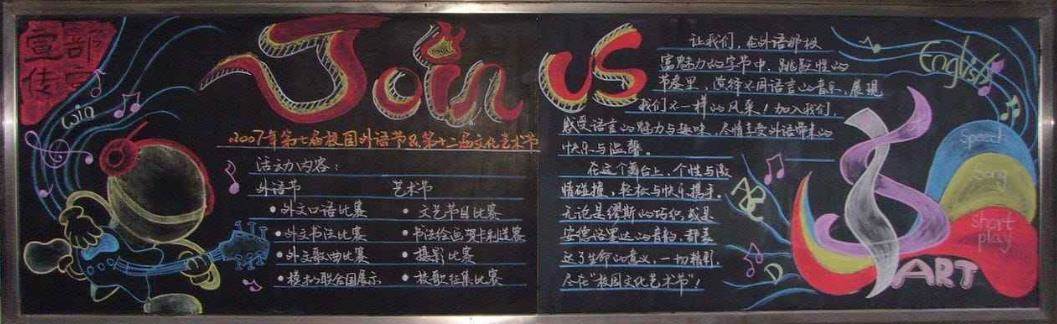 宣传部宣
win
Join us
2007年第七届校园外语节及第十二届文化艺术节
活动内容：
外语节 艺术节
• 外文口语比赛 • 文艺节目比赛
• 外文书法比赛 • 书法绘画贺卡制送赛
• 外文歌曲比赛 • 摄影比赛
• 模拟联合国展示 • 校歌征集比赛
让我们，在外语那极
富魅力的字节中，跳跃性的
节奏里，演绎不同语言的音乐，展现
我们不一样的风采！加入我们，
感受语言的魅力与趣味，尽情享受外语带来的
快乐与温馨。
在这个舞台上，个性与激
情碰撞，轻松与快乐携手。
无论是缪斯的巧织，或是
安德洛里达的青韵，都表
达了生命的意义，一切精彩，
尽在“校园文化艺术节”！
English
Speech
Song
short
play
ART